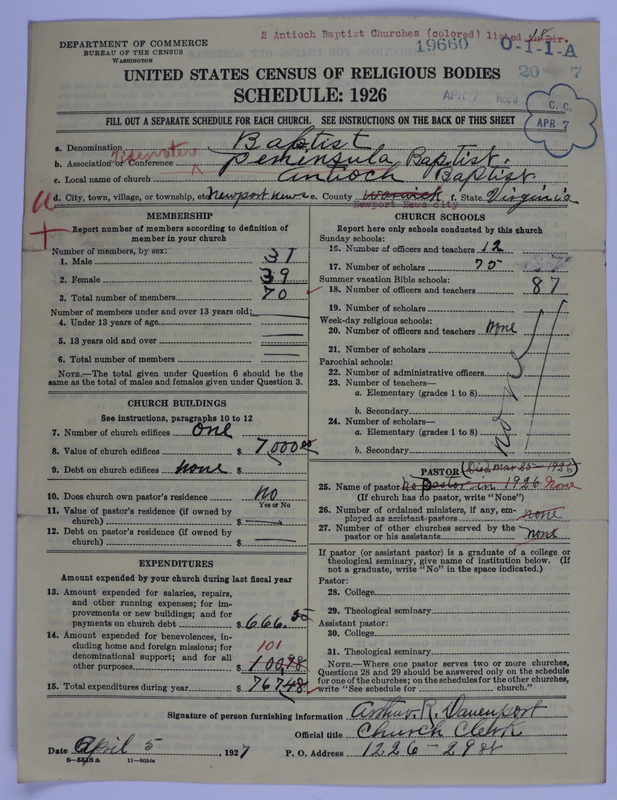 2 Antioch Baptist Churches (colored) listed in Dir.
18
19660 0-1-1-A
20 7
APR 7 Rec'd
C. C.
APR 7
DEPARTMENT OF COMMERCE
BUREAU OF THE CENSUS
WASHINGTON
UNITED STATES CENSUS OF RELIGIOUS BODIES
SCHEDULE: 1926
FILL OUT A SEPARATE SCHEDULE FOR EACH CHURCH. SEE INSTRUCTIONS ON THE BACK OF THIS SHEET
a. Denomination Baptist
Tidewater
b. Association or Conference Peninsula Baptist.
c. Local name of church Antioch Baptist
d. City, town, village, or township, etc. Newport News e. County Warwick f. State Virginia
Newport News city
MEMBERSHIP
Report number of members according to definition of
member in your church
Number of members, by sex:
1. Male 31
2. Female 39
3. Total number of members 70
Number of members under and over 13 years old:
4. Under 13 years of age
5. 13 years old and over
6. Total number of members
NOTE.—The total given under Question 6 should be
same as the total of males and females given under Question 3.
CHURCH BUILDINGS
See instructions, paragraphs 10 to 12
7. Number of church edifices one
8. Value of church edifices $ 7,000.00
9. Debt on church edifices none $
10. Does church own pastor's residence No
Yes or No
11. Value of pastor's residence (if owned by
church) $
12. Debt on pastor's residence (if owned by
church) $
EXPENDITURES
Amount expended by your church during last fiscal year
13. Amount expended for salaries, repairs,
and other running expenses; for im-
provements or new buildings; and for
payments on church debt $ 666.50
14. Amount expended for benevolences, in-
cluding home and foreign missions; for
denominational support; and for all
other purposes $ 100.98
101
15. Total expenditures during year $ 767.48
CHURCH SCHOOLS
Report here only schools conducted by this church
Sunday schools:
16. Number of officers and teachers 12
17. Number of scholars 75
Summer vacation Bible schools:
18. Number of officers and teachers 87
19. Number of scholars
Week-day religious schools:
20. Number of officers and teachers none
21. Number of scholars
Parochial schools:
22. Number of administrative officers
23. Number of teachers—
a. Elementary (grades 1 to 8)
b. Secondary
24. Number of scholars—
a. Elementary (grades 1 to 8)
b. Secondary
none
PASTOR (Died Mar 25-1926)
25. Name of pastor no Pastor in 1926 None
(If church has no pastor, write "None")
26. Number of ordained ministers, if any, em-
ployed as assistant pastors none
27. Number of other churches served by the
pastor or his assistants none
If pastor (or assistant pastor) is a graduate of a college or
theological seminary, give name of institution below. (If
not a graduate, write "No" in the space indicated.)
Pastor:
28. College
29. Theological seminary
Assistant pastor:
30. College
31. Theological seminary
NOTE.—Where one pastor serves two or more churches,
Questions 28 and 29 should be answered only on the schedule
for one of the churches; on the schedules for the other churches,
write "See schedule for church."
Signature of person furnishing information Arthur. R. Davenport
Official title Church Clerk
Date April 5, 1927 P. O. Address 1226-29 st
8-5518 a 11-8054a